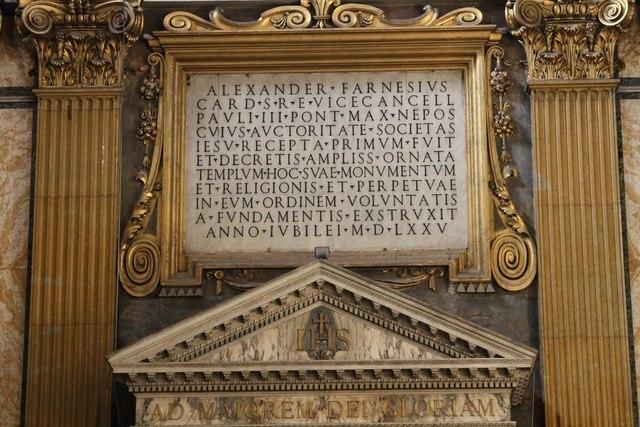 ALEXANDER · FARNESIVS
CARD · S · R · E · VICECANCELL
PAVLI · III · PONT · MAX · NEPOS
CVIVS · AVCTORITATE · SOCIETAS
IESV · RECEPTA · PRIMVM · FVIT
ET · DECRETIS · AMPLISS · ORNATA
TEMPLVM · HOC · SVAE · MONVMENTVM
ET · RELIGIONIS · ET · PERPETVAE
IN · EVM · ORDINEM · VOLVNTATIS
A · FVNDAMENTIS · EXSTRVXIT
ANNO · IVBILEI · M · D · LXXV
IHS
AD MAIOREM DEI GLORIAM